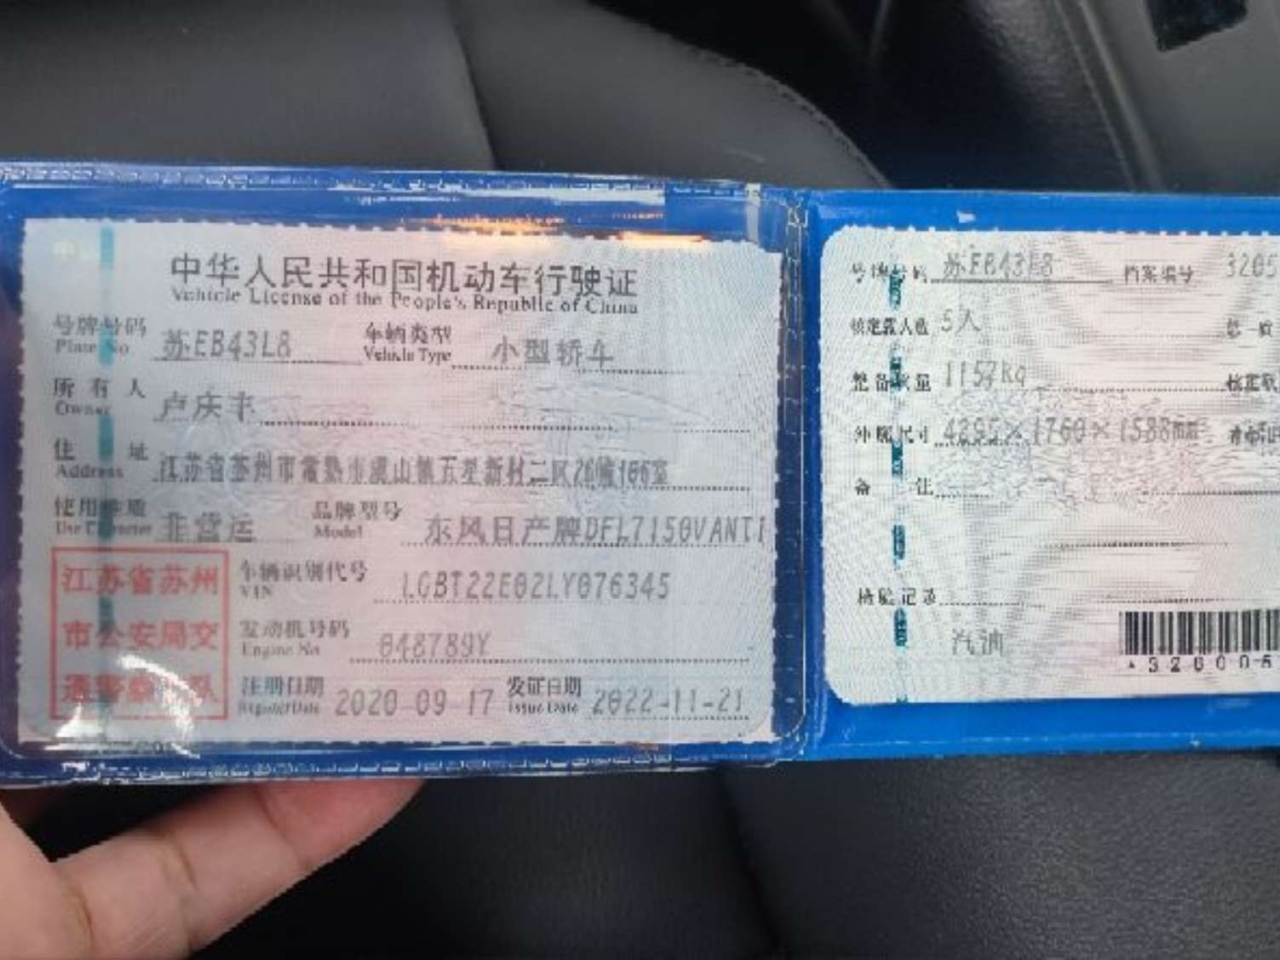 中华人民共和国机动车行驶证
Vehicle License of the People's Republic of China
号牌号码 Plate No 苏EB43L8 车辆类型 Vehicle Type 小型轿车
所有人 Owner 卢庆丰
住址 Address 江苏省苏州市常熟市虞山镇五星新村二区26幢106室
使用性质 Use Character 非营运 品牌型号 Model 东风日产牌DFL7150VANT1
江苏省苏州
市公安局交
通警察支队
车辆识别代号 VIN LGBT22E02LY076345
发动机号码 Engine No 048789Y
注册日期 Register Date 2020-09-17 发证日期 Issue Date 2022-11-21
号牌号码 苏EB43L8 档案编号 3205
核定载人数 5人 总质
整备质量 1157kg 核定载
外廓尺寸 4295×1760×1588mm
备注
检验记录
汽油
*326005